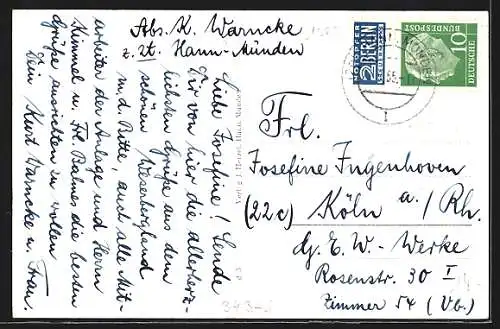 Abs. K. Warncke
z. Zt. Hann-Münden
Liebe Josefine! Sende
Dir von hier die allerherz-
lichsten Grüße aus dem
schönen Weserbergland
m. d. Bitte, auch alle Mit-
arbeiter der Anlage und Herrn
Kümmel u. Frl. Balmes die besten
Grüße ausrichten zu wollen
Dein Kurt Warncke u. Frau.
NOTOPFER
2 BERLIN
STEUERMARKE
DEUTSCHE
BUNDESPOST
10
Frl.
Josefine Jugenhoven
(22c) Köln a./Rh.
G. E. W. - Werke
Rosenstr. 30 I
Zimmer 54 (Vb.)